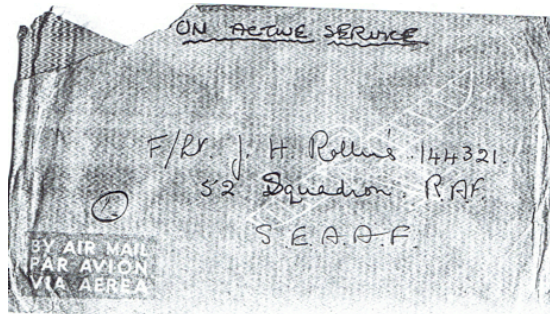 ON ACTIVE SERVICE
F/Lt J. H. Rollins. 144321.
52 Squadron. R.A.F.
S.E.A.A.F.
BY AIR MAIL
PAR AVION
VIA AEREA